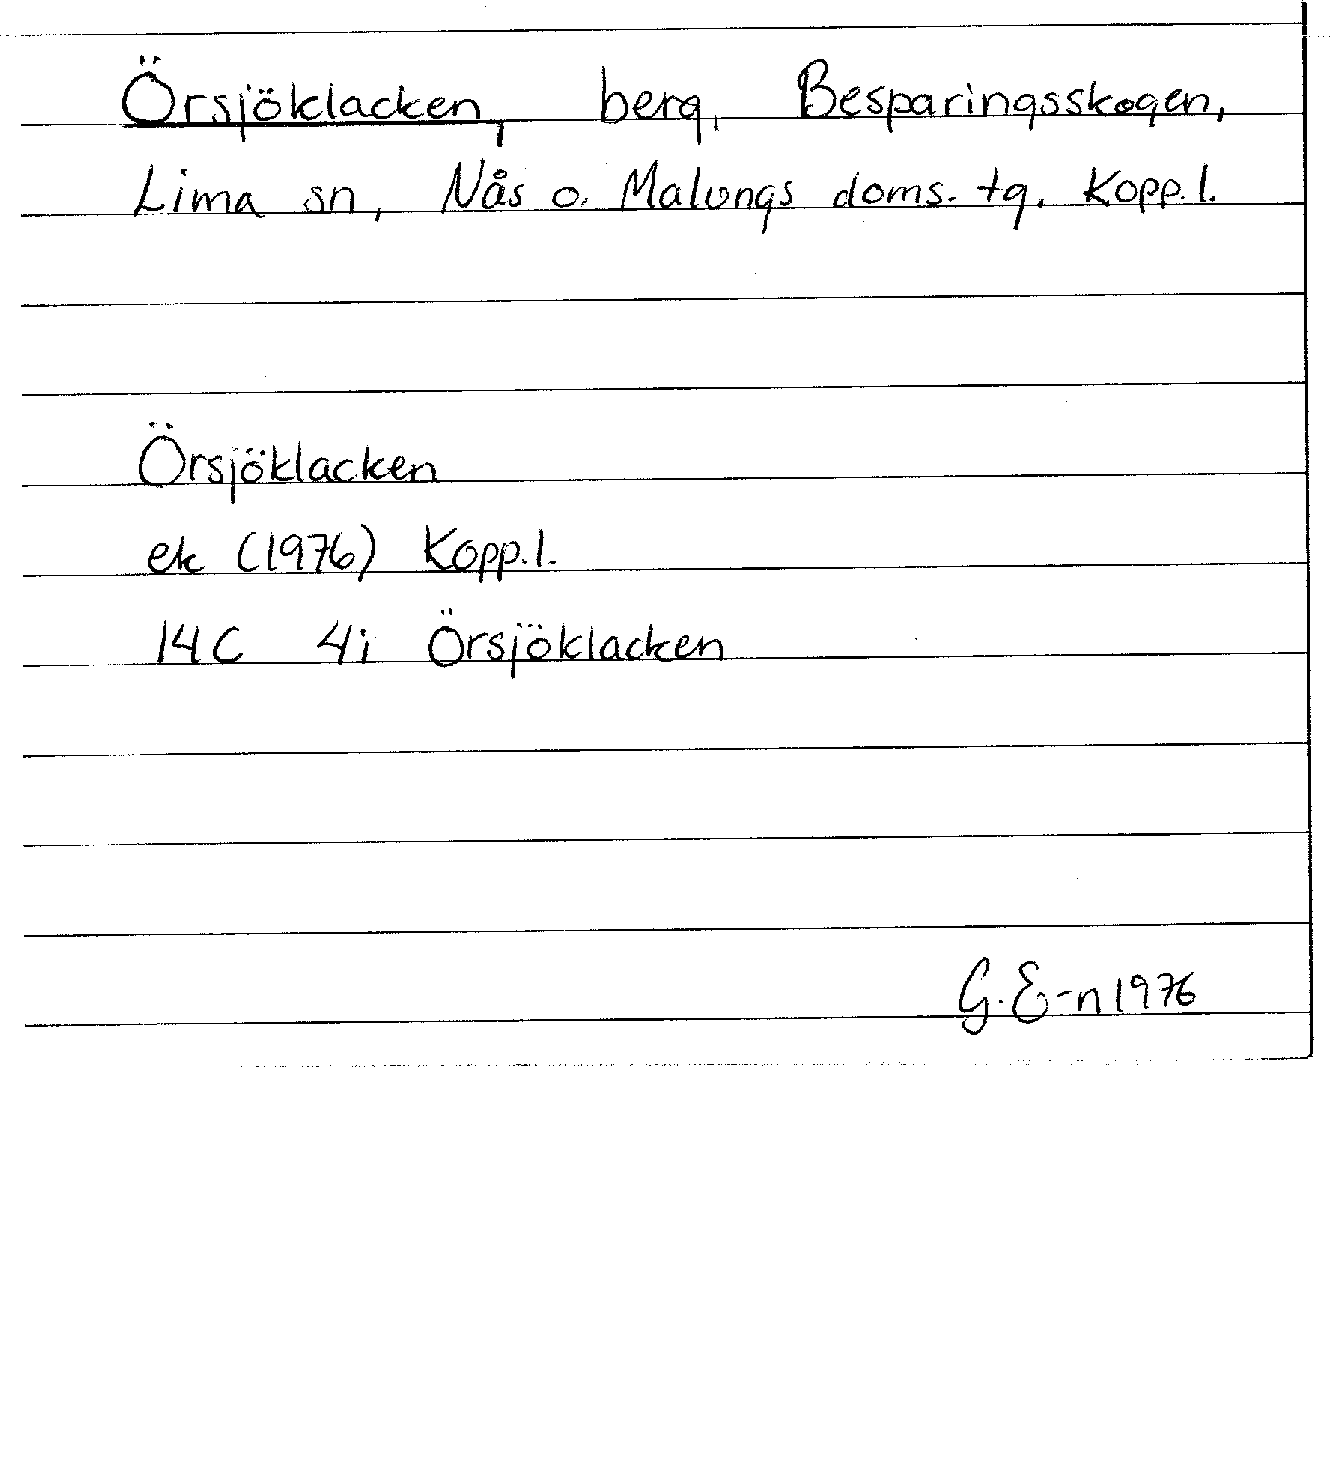 Örsjöklacken, berg, Besparingsskogen,
Lima sn, Nås o. Malungs doms. tg. Kopp.l.
Örsjöklacken
ek (1976) Kopp.l.
14C 4i Örsjöklacken
G.E-n 1976